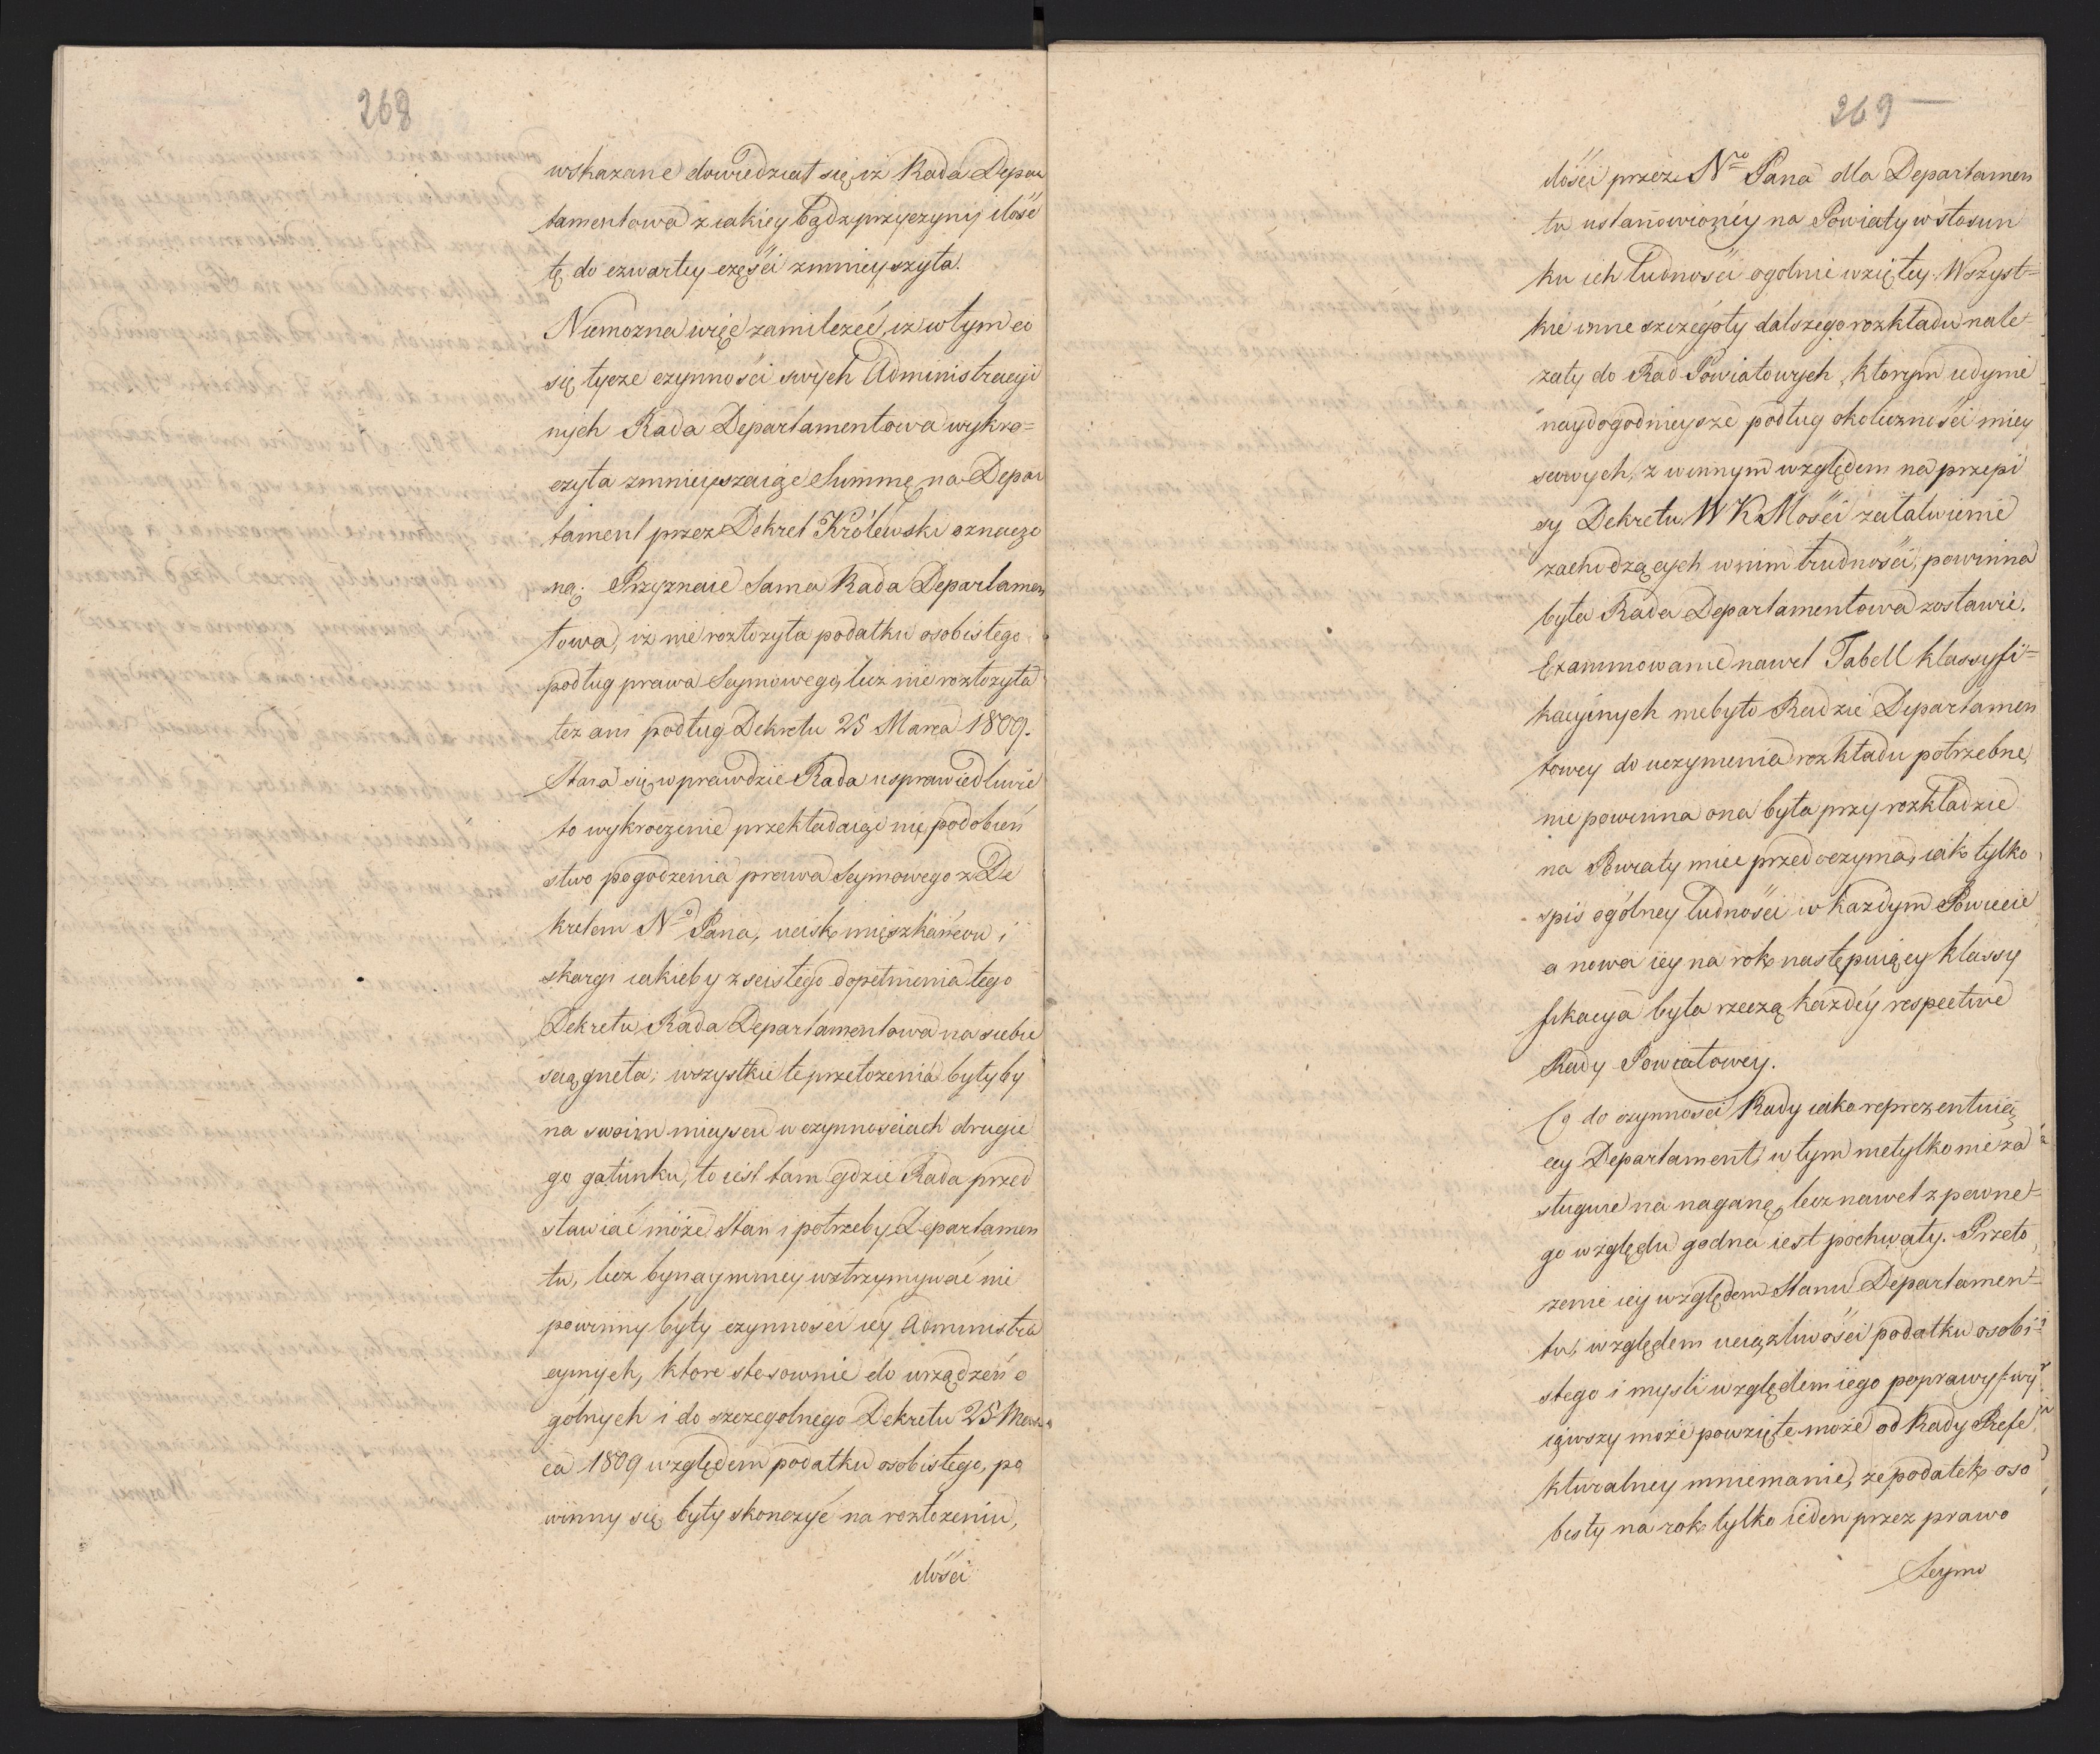 268
wskazane dowiedział się iż Rada Depar
tamentowa z iakiey bądz przyczyny ilość
tę do czwartey części zmnieyszyła.
Niemozna więc zamilczeć, iz w tym co
się tycze czynności swych Administracyi
nych Rada Departamentowa wykro=
czyła zmnieyszaiąc Summę na Depar
tament przez Dekret Królewski oznaczo
ną; Przyznaie Sama Rada Departamen
towa, iz nie rozłozyła podatku osobistego
podług prawa Seymowego, lecz nie rozłozyła
tez ani podług Dekretu 25 Marca 1809.
Stara się wprawdzie Rada usprawiedliwić
to wykroczenie przekładaiąc nie podobień
stwo pogodzenia prawa Seymowego z De
kretem No Pana, ucisk mięszkańców i
skargi iakieby z scisłego dopełnienia tego
Dekretu Rada Departamentowa na siebie
sciągneła; wszystkie te przełozenia byłyby
na swoim mieyscu w czynnosciach drugie
go gatunku, to iest tam gdzie Rada przed
stawiać może Stan i potrzeby Departamen
tu, lecz bynaymniey wstrzymywać nie
powinny były czynności iey Administra
cyinych, ktore stosownie do urządzeń o
gólnych i do szczegolnego Dekretu 25 Mar
ca 1809 względem podatku osobistego, po
winny się były skonczyć na rozłozeniu,
ilości
269
ilości przez Nro Pana dla Departamen
tu ustanowioney na Powiaty w stosun
ku ich ludności ogolnie wziętey. Wszyst=
kie inne szczegóły dalszego rozkładu nale=
zały do Rad Powiatowych, ktorym iedynie
naydogodnieysze podług okoliczności miey
scowych, z winnym względem na przepi
sy Dekretu W K Mości załatwienie
zachodzących w nim trudności, powinna
była Rada Departamentowa zostawić.
Examinowanie nawet Tabell klassyfi=
kacyinych niebyło Radzie Departamen
towey do uczynienia rozkładu potrzebne,
nie powinna ona była przy rozkładzie
na Powiaty mieć przed oczyma, iak tylko
spis ogólney ludności w każdym Powiecie
a nowa iey na rok następuiący klassy
fikacya była rzeczą każdey respective
Rady Powiatowey.
Co do czynnosci Rady iako reprezentuią
cey Departament, w tym nietylko nie za
sługuie na naganę, lecz nawet z pewne=
go względu godna iest pochwały. Przeło
zenie iey względem Stanu Departamen=
tu, względem uciązliwości podatku osobi=
stego i mysli względem iego poprawy wy
iąwszy może powzięte może od Rady Prefe
kturalney mniemanie, ze podatek oso
bisty na rok tylko ieden przez prawo
Seymo